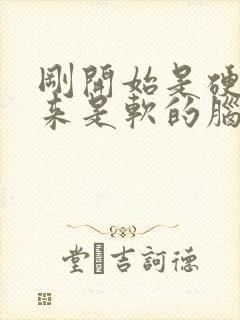 剛開始是硬
來是軟的腦
堂吉訶德